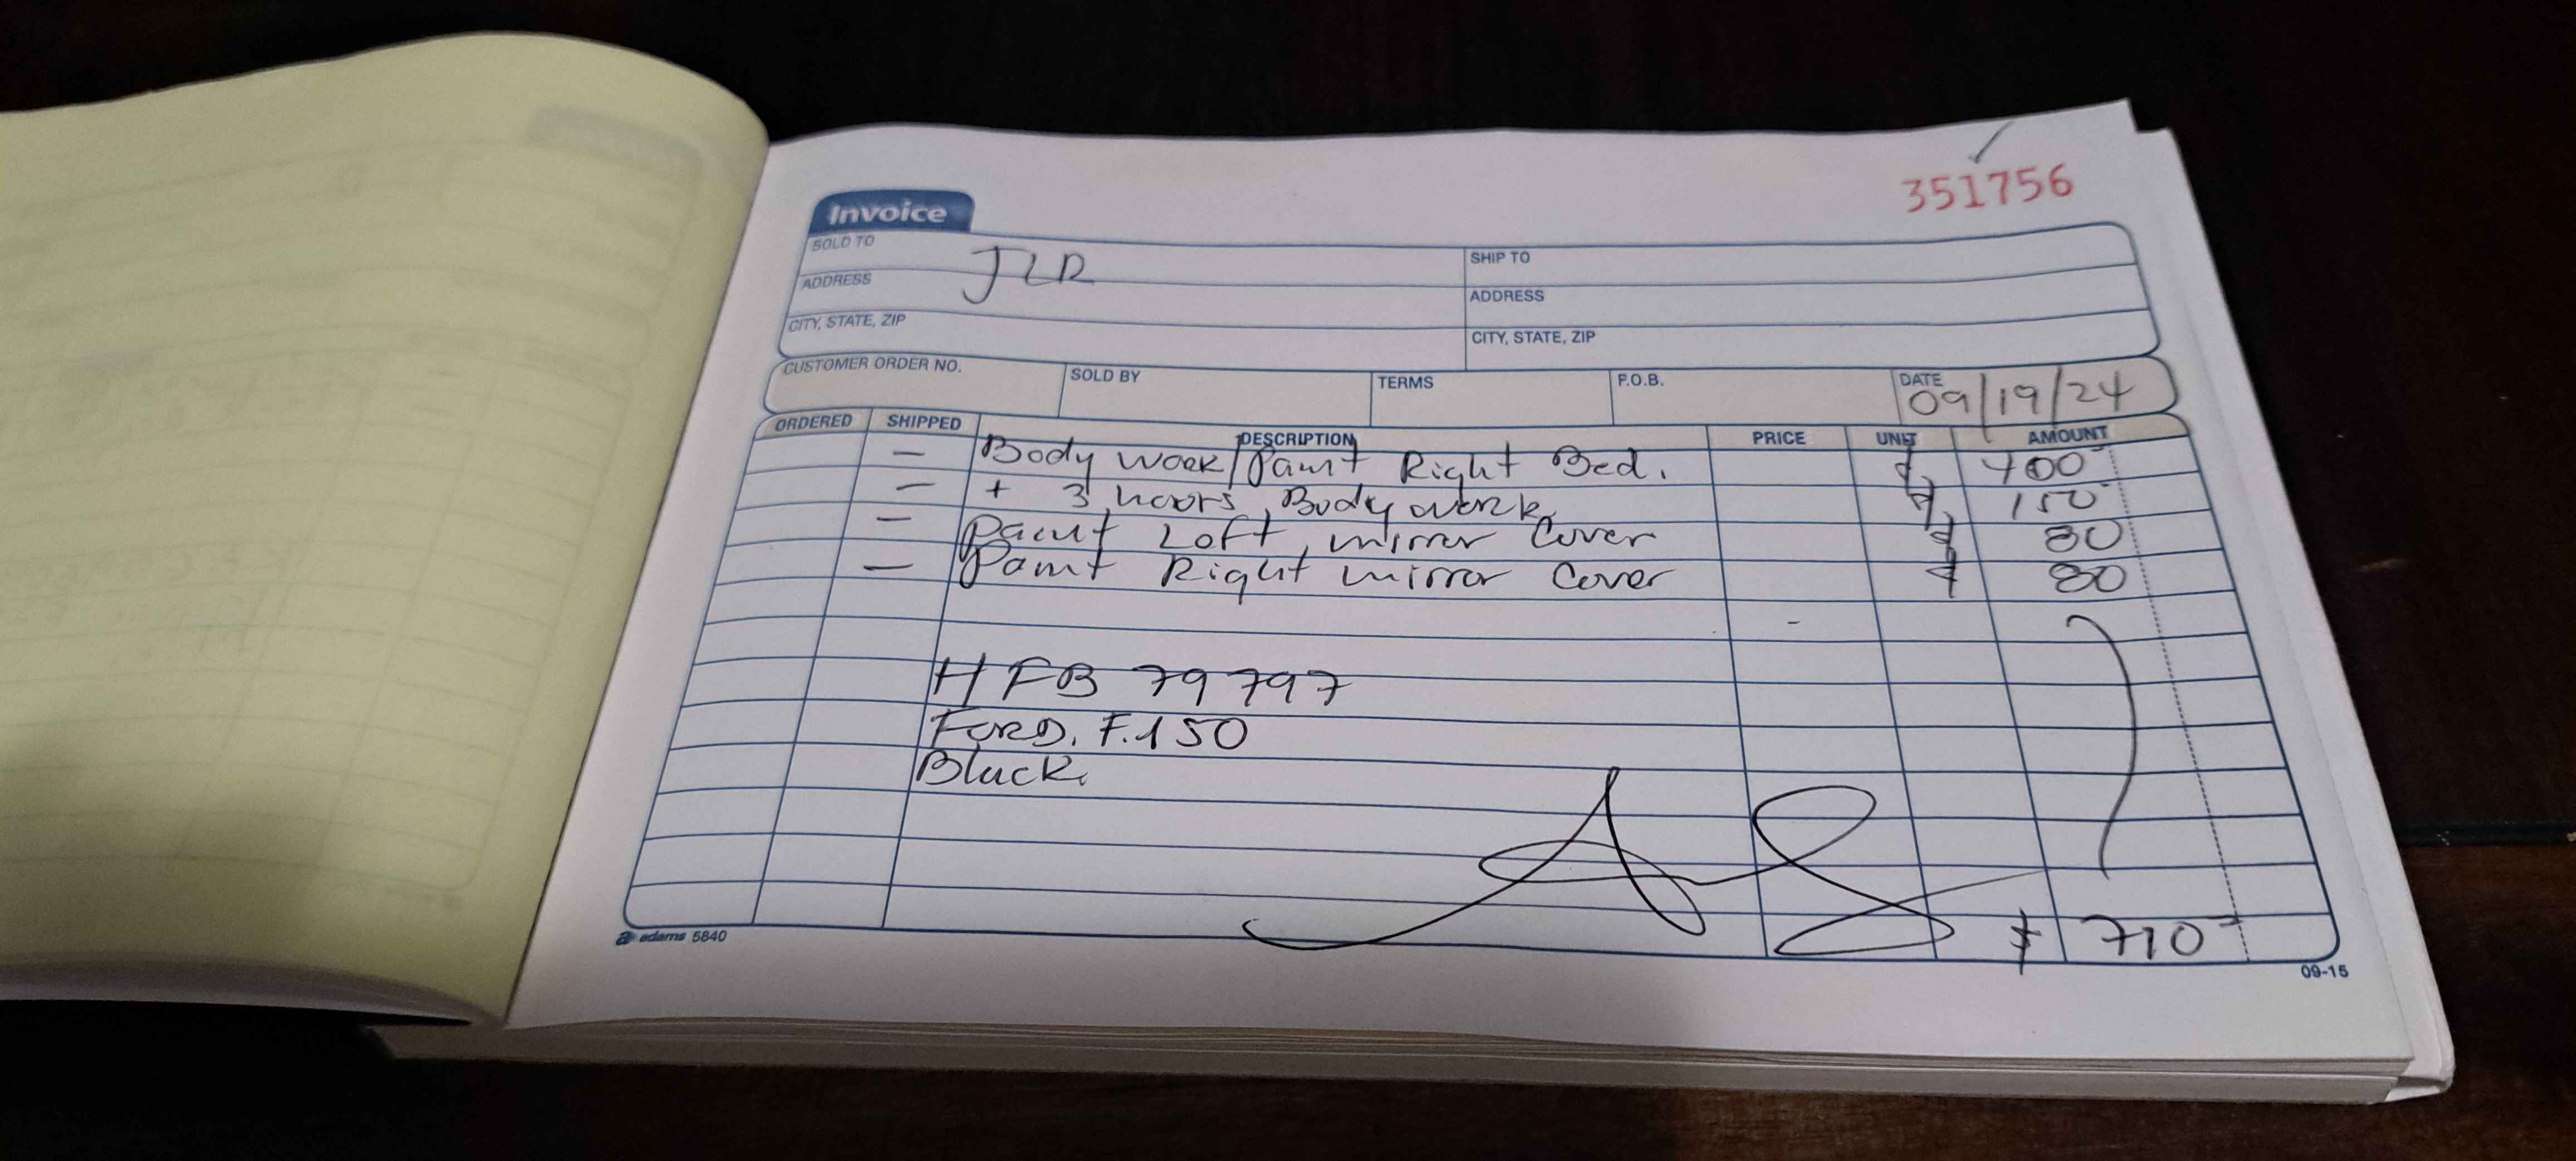 351756
Invoice
SOLD TO JLR
SHIP TO
ADDRESS
ADDRESS
CITY, STATE, ZIP
CITY, STATE, ZIP
CUSTOMER ORDER NO. SOLD BY TERMS F.O.B. DATE 09/19/24
ORDERED SHIPPED DESCRIPTION PRICE UNIT AMOUNT
— Body work/Paint Right Bed. $ 400
— + 3 hours Body work $ 150
— Paint Left mirror Cover $ 80
— Paint Right mirror Cover $ 80
HFB 79797
FORD. F.150
Black.
$ 710
adams 5840
09-15